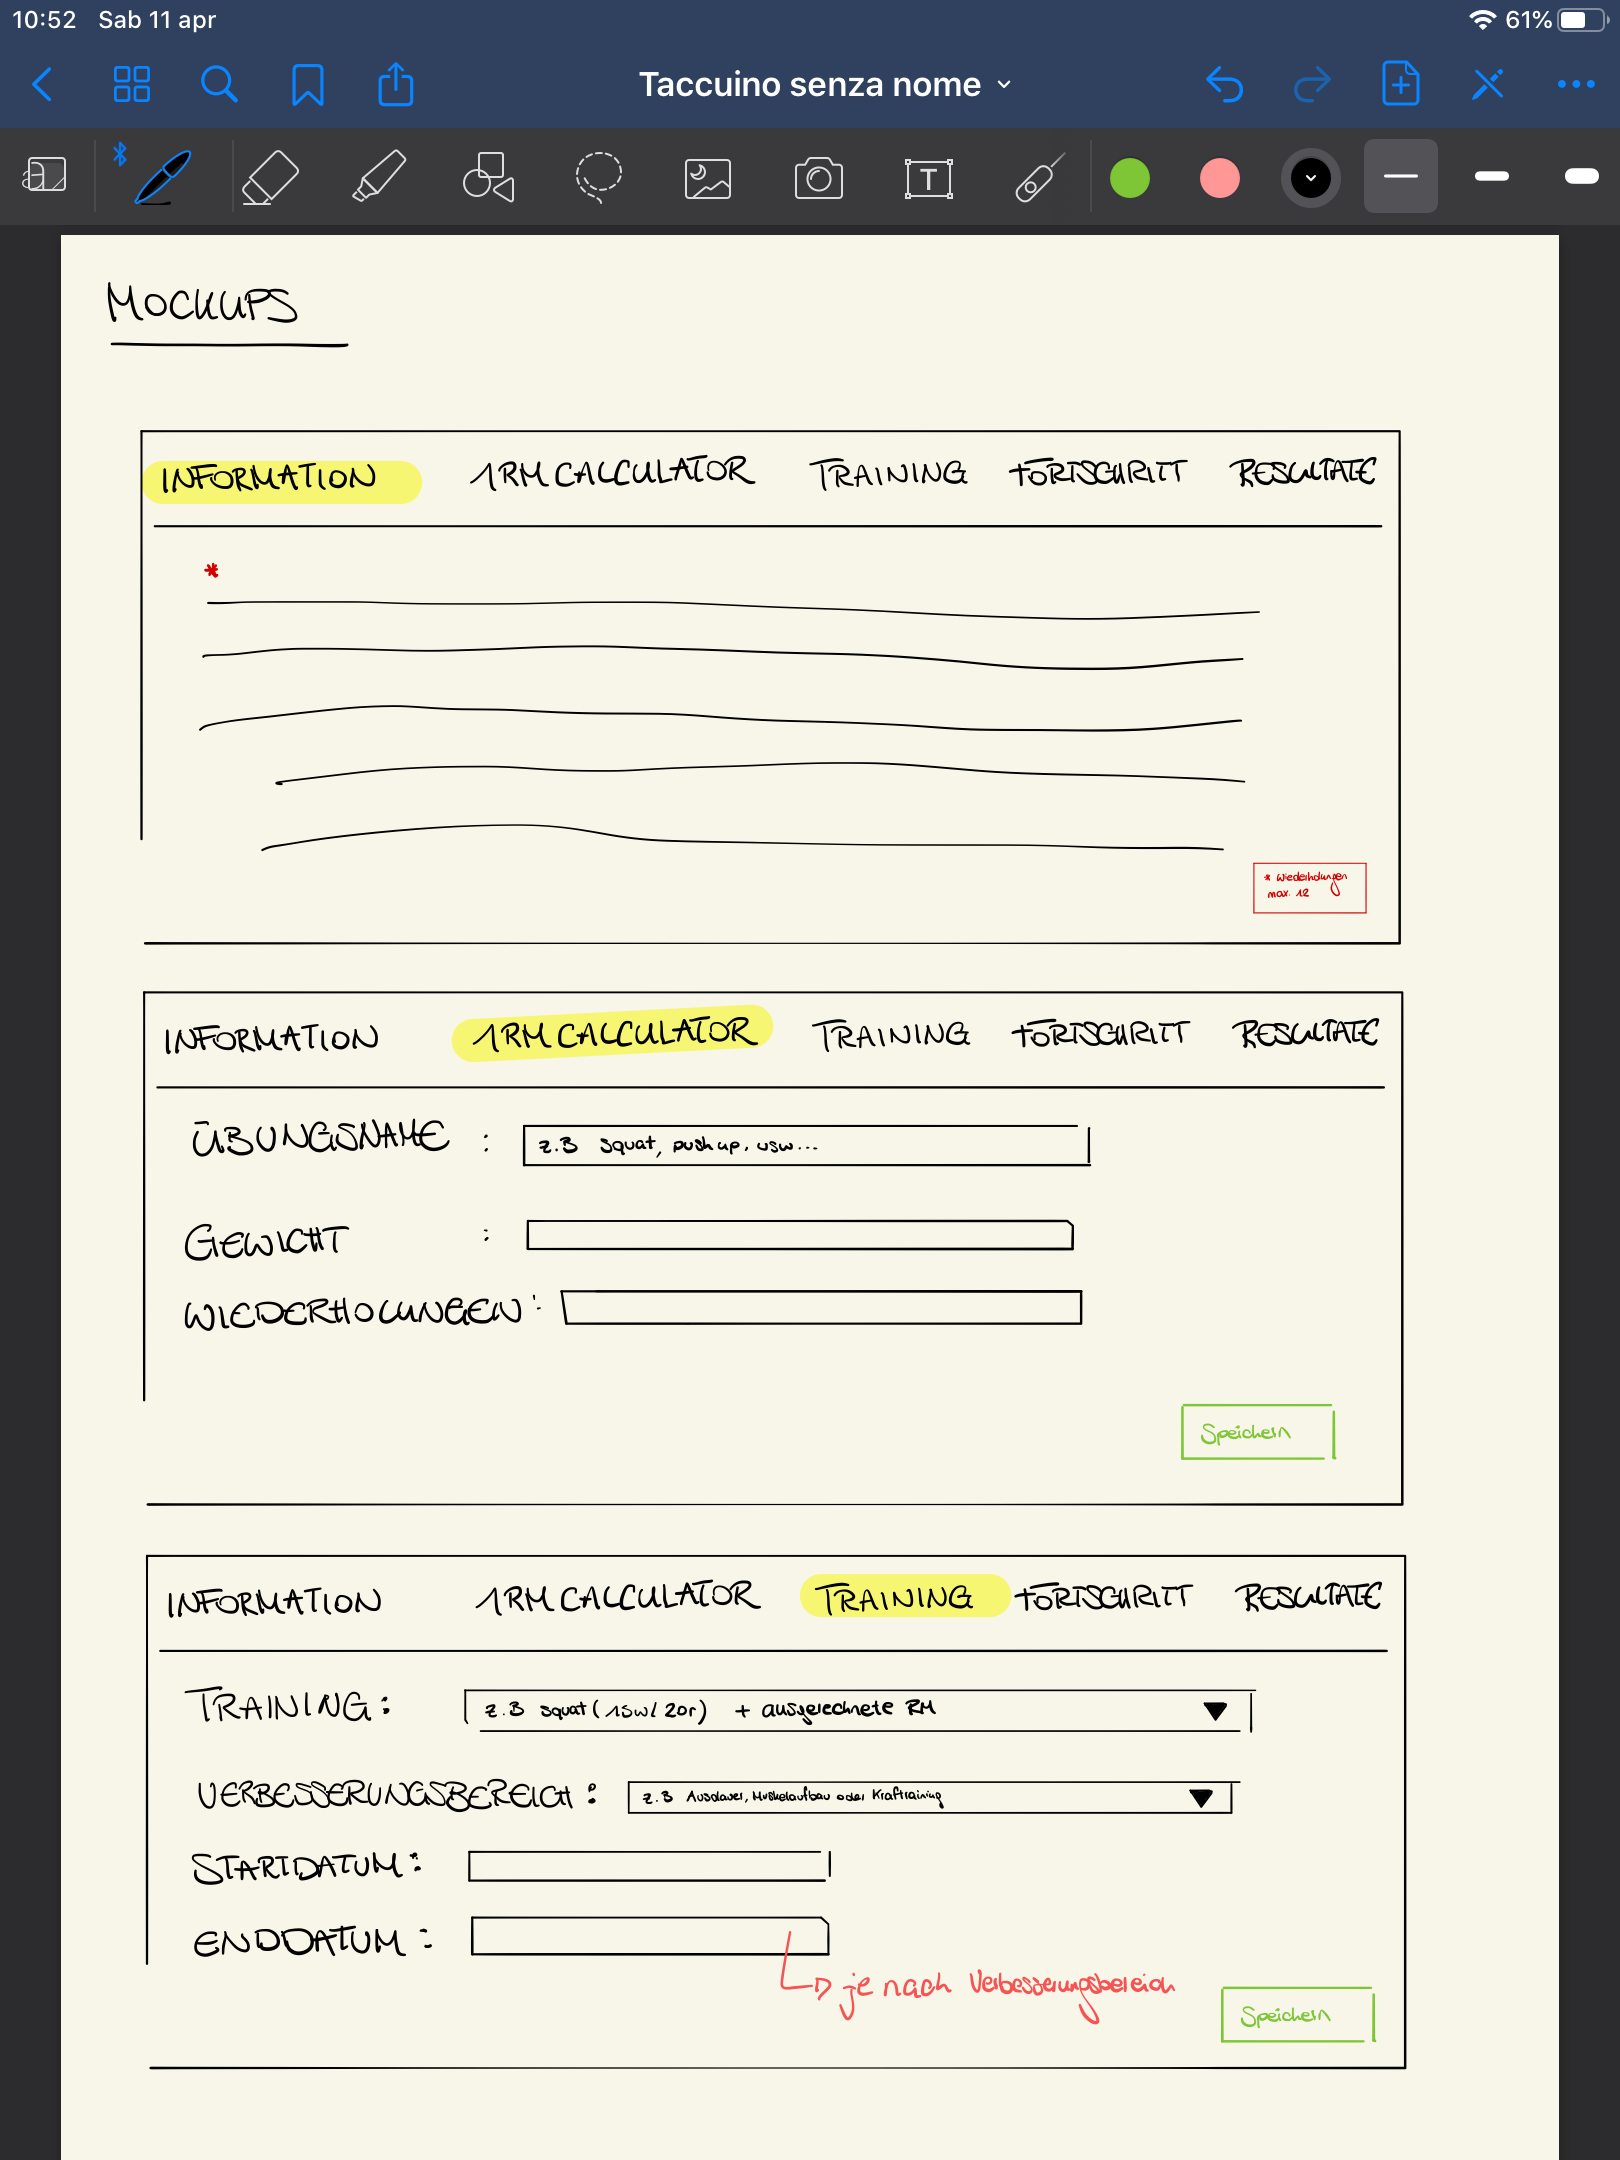 10:52 Sab 11 apr 61%
Taccuino senza nome
T
MOCKUPS
INFORMATION 1RM CALCULATOR TRAINING FORTSCHRITT RESULTATE
*
* Wiederholungen
max. 12
INFORMATION 1RM CALCULATOR TRAINING FORTSCHRITT RESULTATE
ÜBUNGSNAME : z.B squat, push up, usw...
GEWICHT :
WIEDERHOLUNGEN :
Speichern
INFORMATION 1RM CALCULATOR TRAINING FORTSCHRITT RESULTATE
TRAINING: z.B squat (15w/20r) + ausgerechnete RM
VERBESSERUNGSBEREICH: z.B Ausdauer, Muskelaufbau oder Kraftraining
STARTDATUM:
ENDDATUM:
je nach Verbesserungsbereich
Speichern